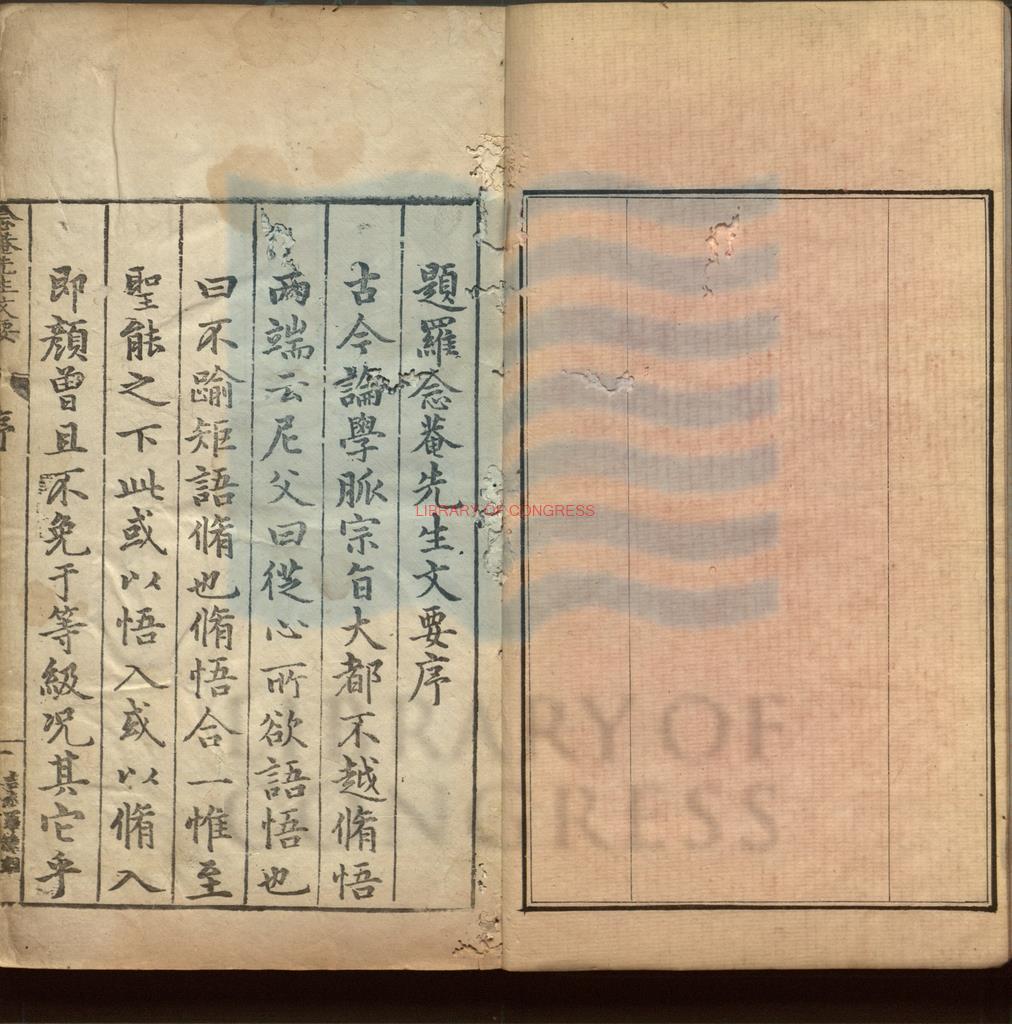 題羅念菴先生文要序
古今論學脈宗旨大都不越脩悟
兩端云尼父曰從心所欲語悟也
曰不踰矩語脩也脩悟合一惟至
聖能之下此或以悟入或以脩入
即顏曾且不免于等級况其它乎
念菴先生文要
序
一
LIBRARY OF CONGRESS
LIBRARY OF
CONGRESS